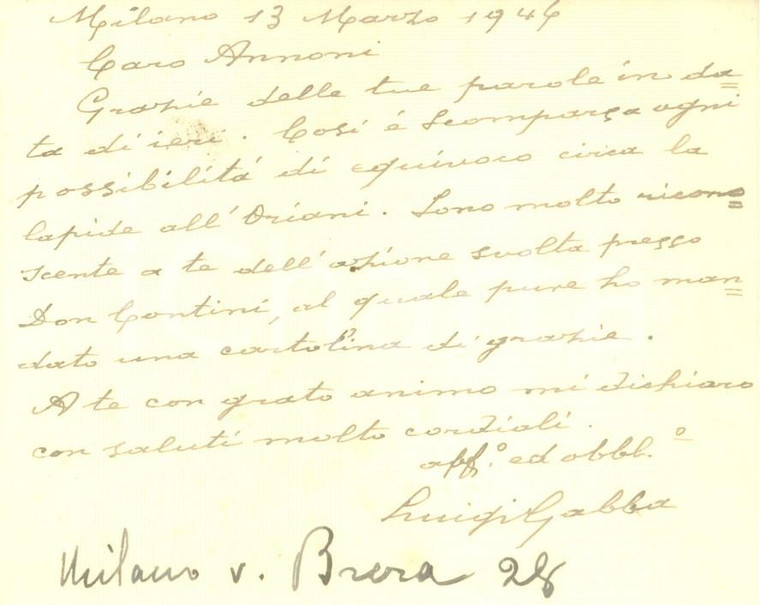 Milano 13 Marzo 1946
Caro Annoni
Grazie delle tue parole in da=
ta di ieri. Così é scomparsa ogni
possibilitá di equivoco circa la
lapide all'Oriani. Sono molto ricono=
scente a te dell'azione svolta presso
Don Contini, al quale pure ho man=
dato una cartolina di grazie.
A te con grato animo mi dichiaro
con saluti molto cordiali.
aff.º ed obbl.º
Luigi Gabba
Milano v. Brera 28